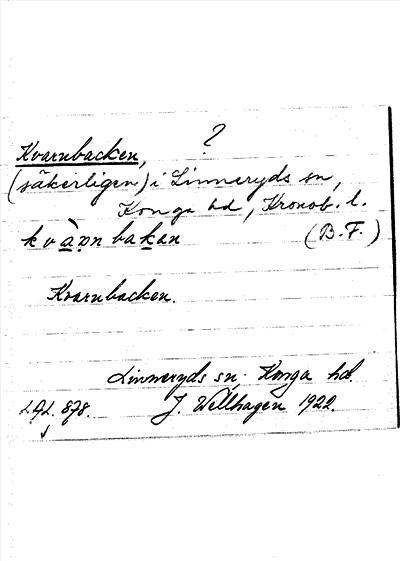 ?
Kvarnbacken,
(säkerligen) i Linneryds sn,
Konga hd, Kronob. l.
kvàn bakan (B.F.)
Kvarnbacken.
Linneryds sn. Konga hd.
J. Wellhagen 1922.
878.